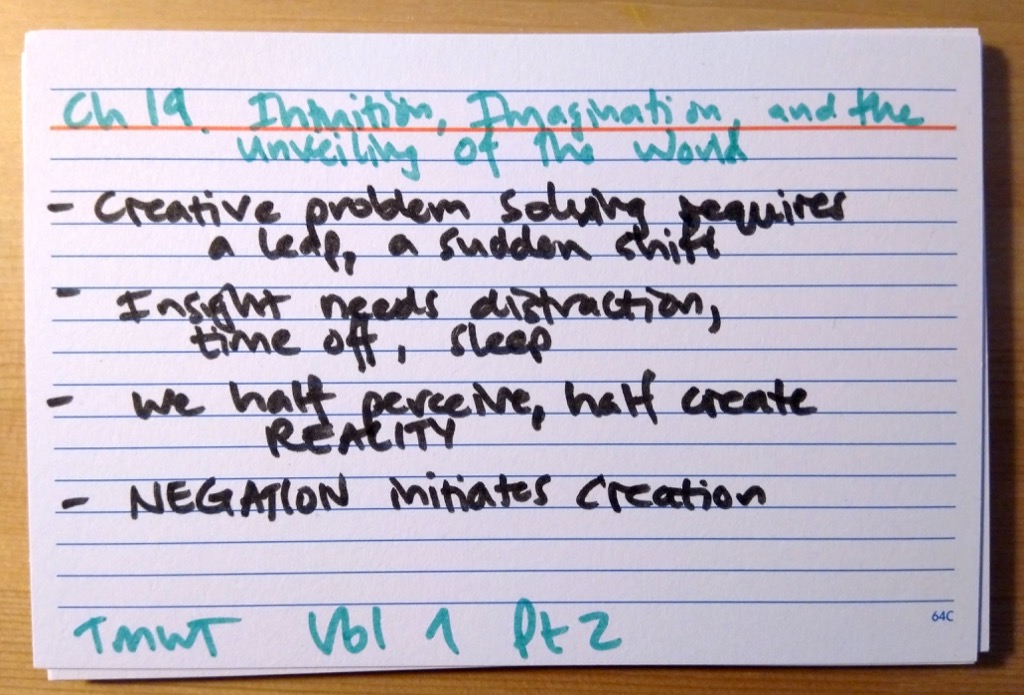 Ch 19. Intuition, Imagination, and the
unveiling of the World
- Creative problem solving requires
a leap, a sudden shift
- Insight needs distraction,
time off, sleep
- We half perceive, half create
REALITY
- NEGATION initiates Creation
64C
TMWT Vol 1 Pt 2